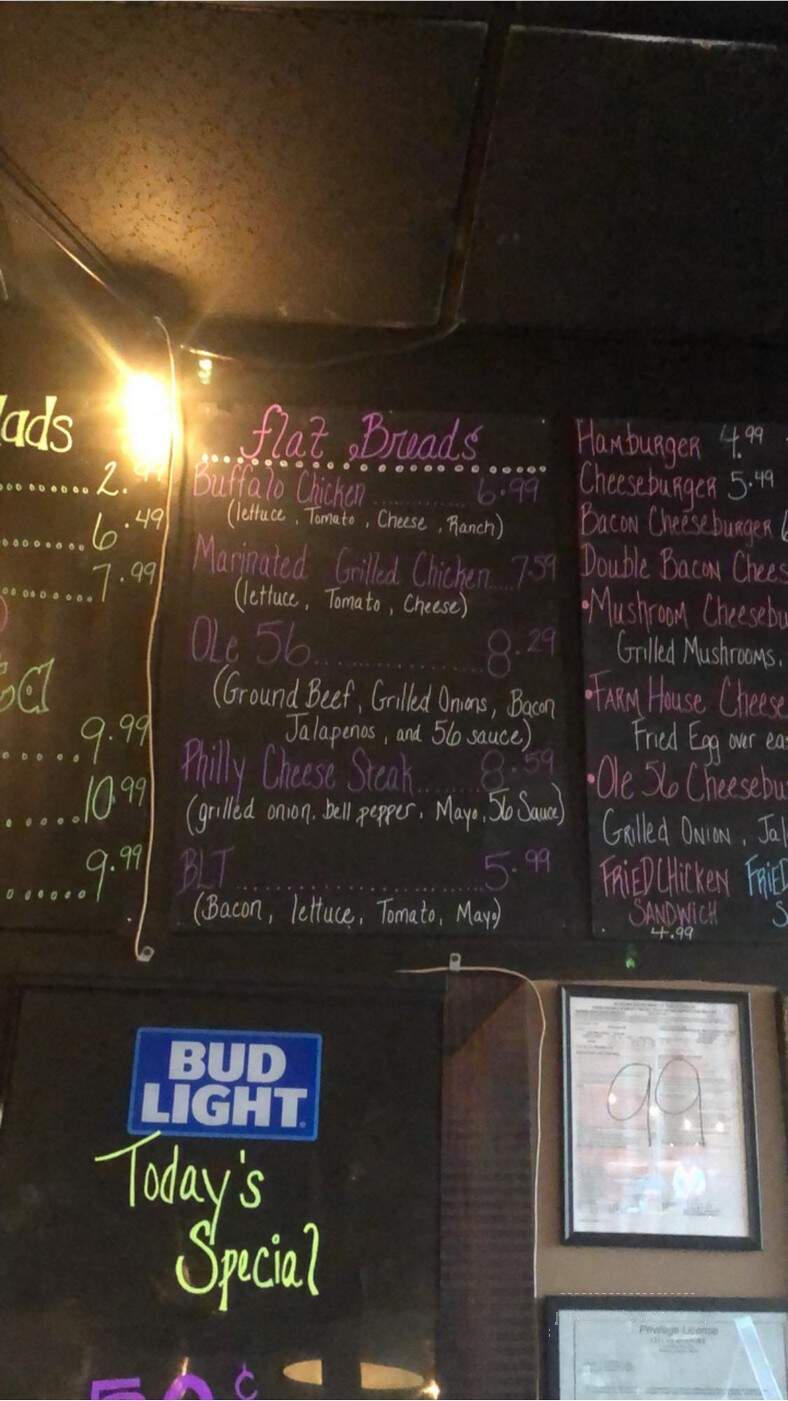 ads
2.
6.49
7.99
9.99
10.99
9.99
flat Breads
Buffalo Chicken ........... 6.99
(lettuce, Tomato, Cheese, Ranch)
Marinated Grilled Chicken....7.59
(lettuce, Tomato, Cheese)
Ole 56..................8.29
(Ground Beef, Grilled Onions, Bacon
Jalapenos, and 56 sauce)
Philly Cheese Steak........8.59
(grilled onion. bell pepper, Mayo, 56 Sauce)
BLT.........................5.99
(Bacon, lettuce, Tomato, Mayo)
Hamburger 4.99
Cheeseburger 5.49
Bacon Cheeseburger
Double Bacon Chees
•Mushroom Cheesebu
Grilled Mushrooms,
•Farm House Cheese
Fried Egg over ea
•Ole 56 Cheesebu
Grilled Onion, Jal
Fried Chicken
Sandwich
4.99
Fried
S
BUD
LIGHT
Today's
Special
50¢
99
Privilege License